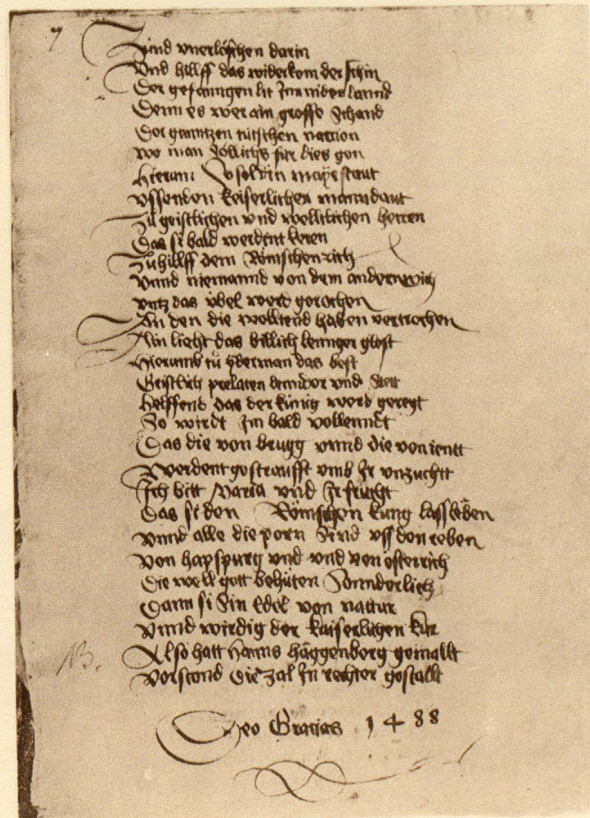 7
Sind vnerloschen darin
Vnd hilff das widerkom der schin
Der gefanngen lit Im niderlannd
Denn es wer ain grosse schand
Der ganntzen tütschen nacion
wo man sollichs für lies gon
Hierum So sol din mayestaut
vssenden keiserlichen manndaut
Zu geistlichen vnd welltlichen herren
Das si bald werdent keren
Zu hillff dem Römschen rich
Vnnd niemannd von dem andern wich
vntz das übel werd gerochen
An den die
Ain liecht das billich
Hierumb tü yderman das best
Geistlich prelaten vnd Stett
Helffend das der künig werd gerett
So wirdt Im bald vollenndt
Das die von brugg vnnd die von jentt
Werdent gestraufft vmb Ir vnzuchtt
Ich bitt Maria vnd Ir frucht
Das si den Römschen kung lass leben
vnnd alle die porn Sind vss den reben
von hapspurg vnd vnd von österrich
Die well gott behüten Sonnderlich
Dann si Sin Edel von nattur
Vnnd wirdig der kaiserlichen kur
Also hatt Hanns häggenberg gemallt
verstond Die zal In rechter gestallt
Deo Gracias 1488